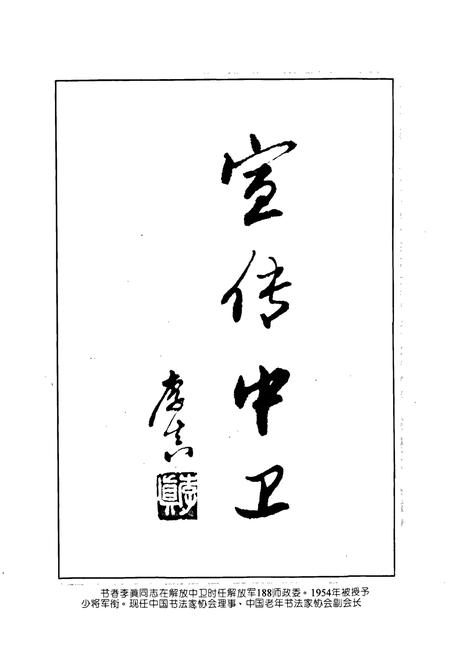 宣传中卫
李真
李真
书者李真同志在解放中卫时任解放军188师政委。1954年被授予
少将军衔。现任中国书法家协会理事、中国老年书法家协会副会长